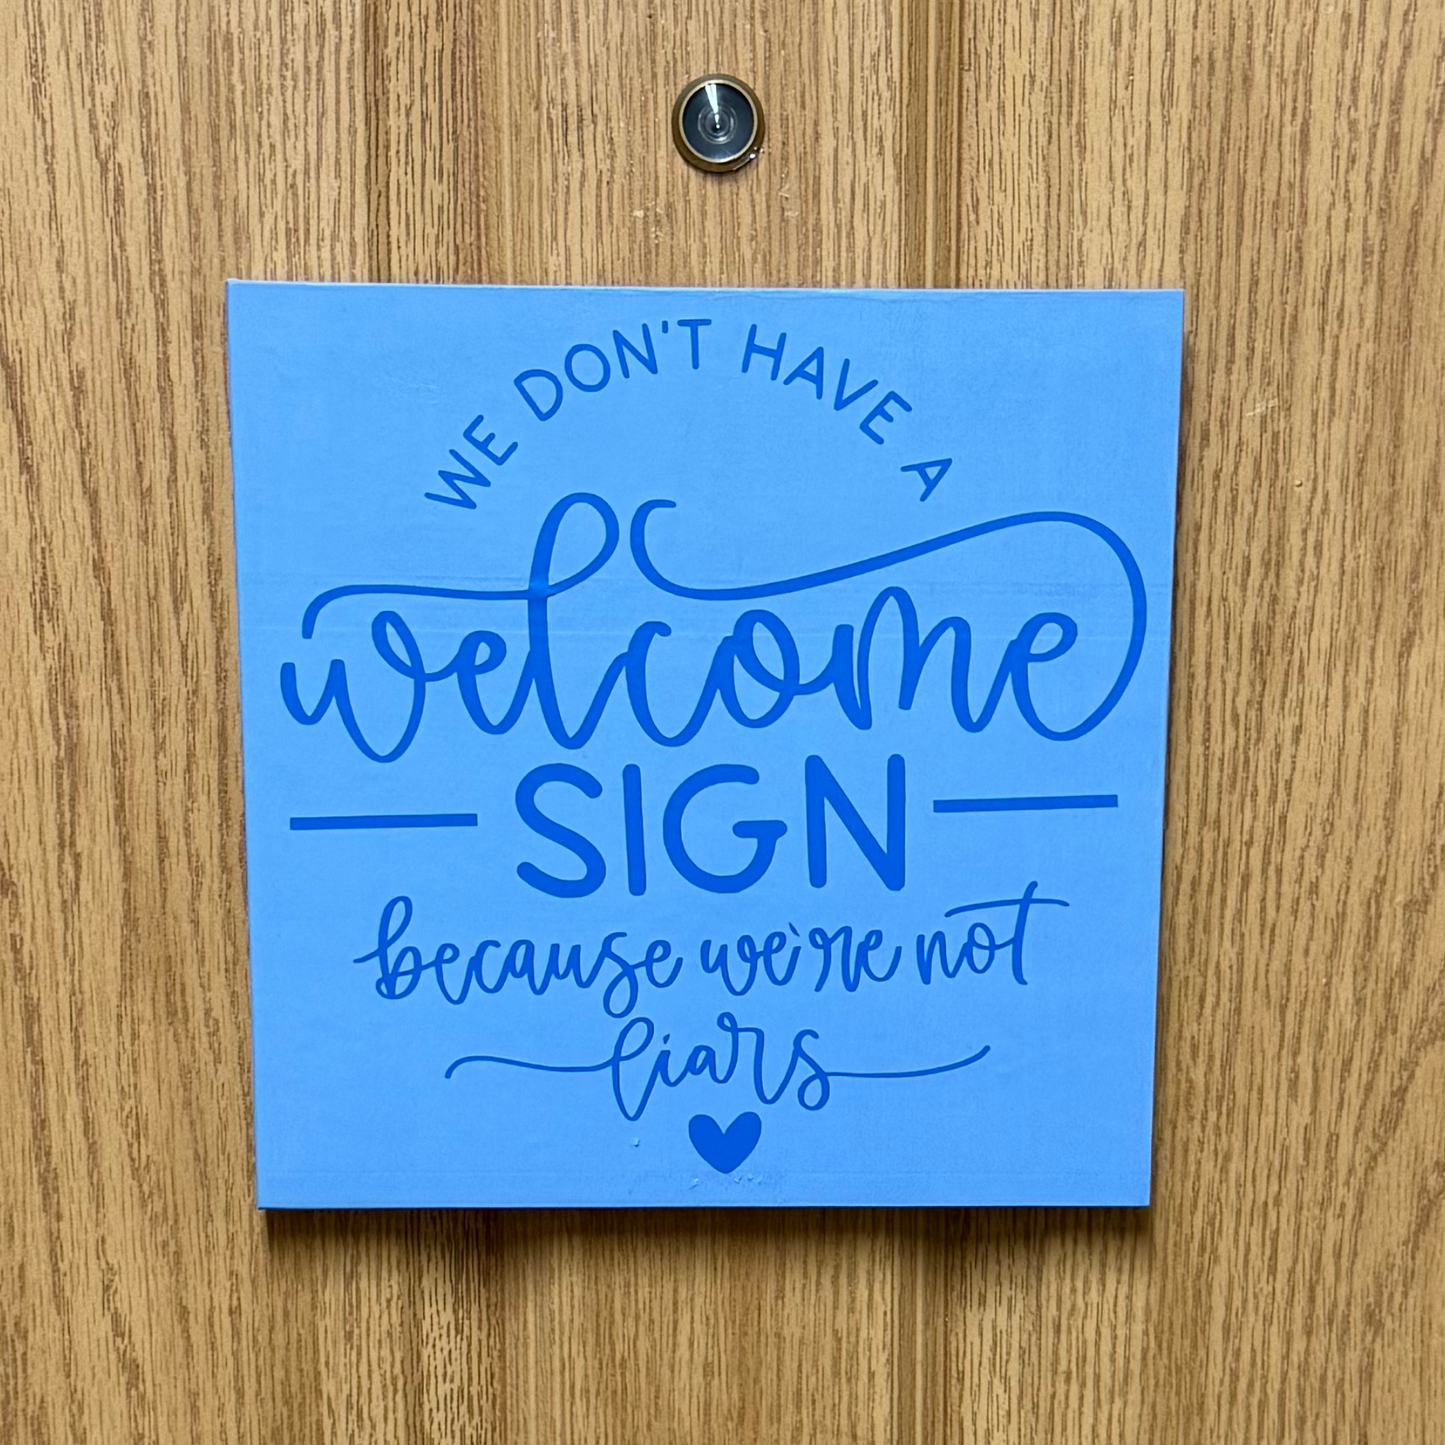 WE DON'T HAVE A
welcome
SIGN
because we're not
liars